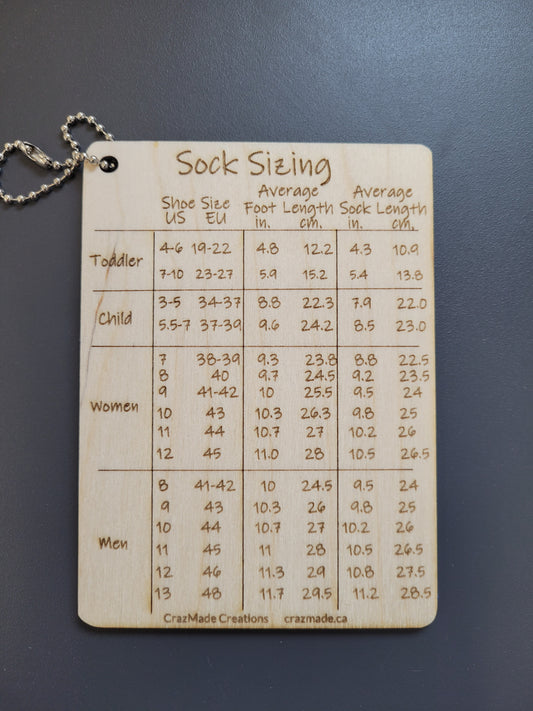 Sock Sizing
Shoe Size Average Foot Length Average Sock Length
US EU in. cm. in. cm.
Toddler
4-6 19-22 4.8 12.2 4.3 10.9
7-10 23-27 5.9 15.2 5.4 13.8
Child
3-5 34-37 8.8 22.3 7.9 22.0
5.5-7 37-39 9.6 24.2 8.5 23.0
Women
7 38-39 9.3 23.8 8.8 22.5
8 40 9.7 24.5 9.2 23.5
9 41-42 10 25.5 9.5 24
10 43 10.3 26.3 9.8 25
11 44 10.7 27 10.2 26
12 45 11.0 28 10.5 26.5
Men
8 41-42 10 24.5 9.5 24
9 43 10.3 26 9.8 25
10 44 10.7 27 10.2 26
11 45 11 28 10.5 26.5
12 46 11.3 29 10.8 27.5
13 48 11.7 29.5 11.2 28.5
CrazMade Creations crazmade.ca